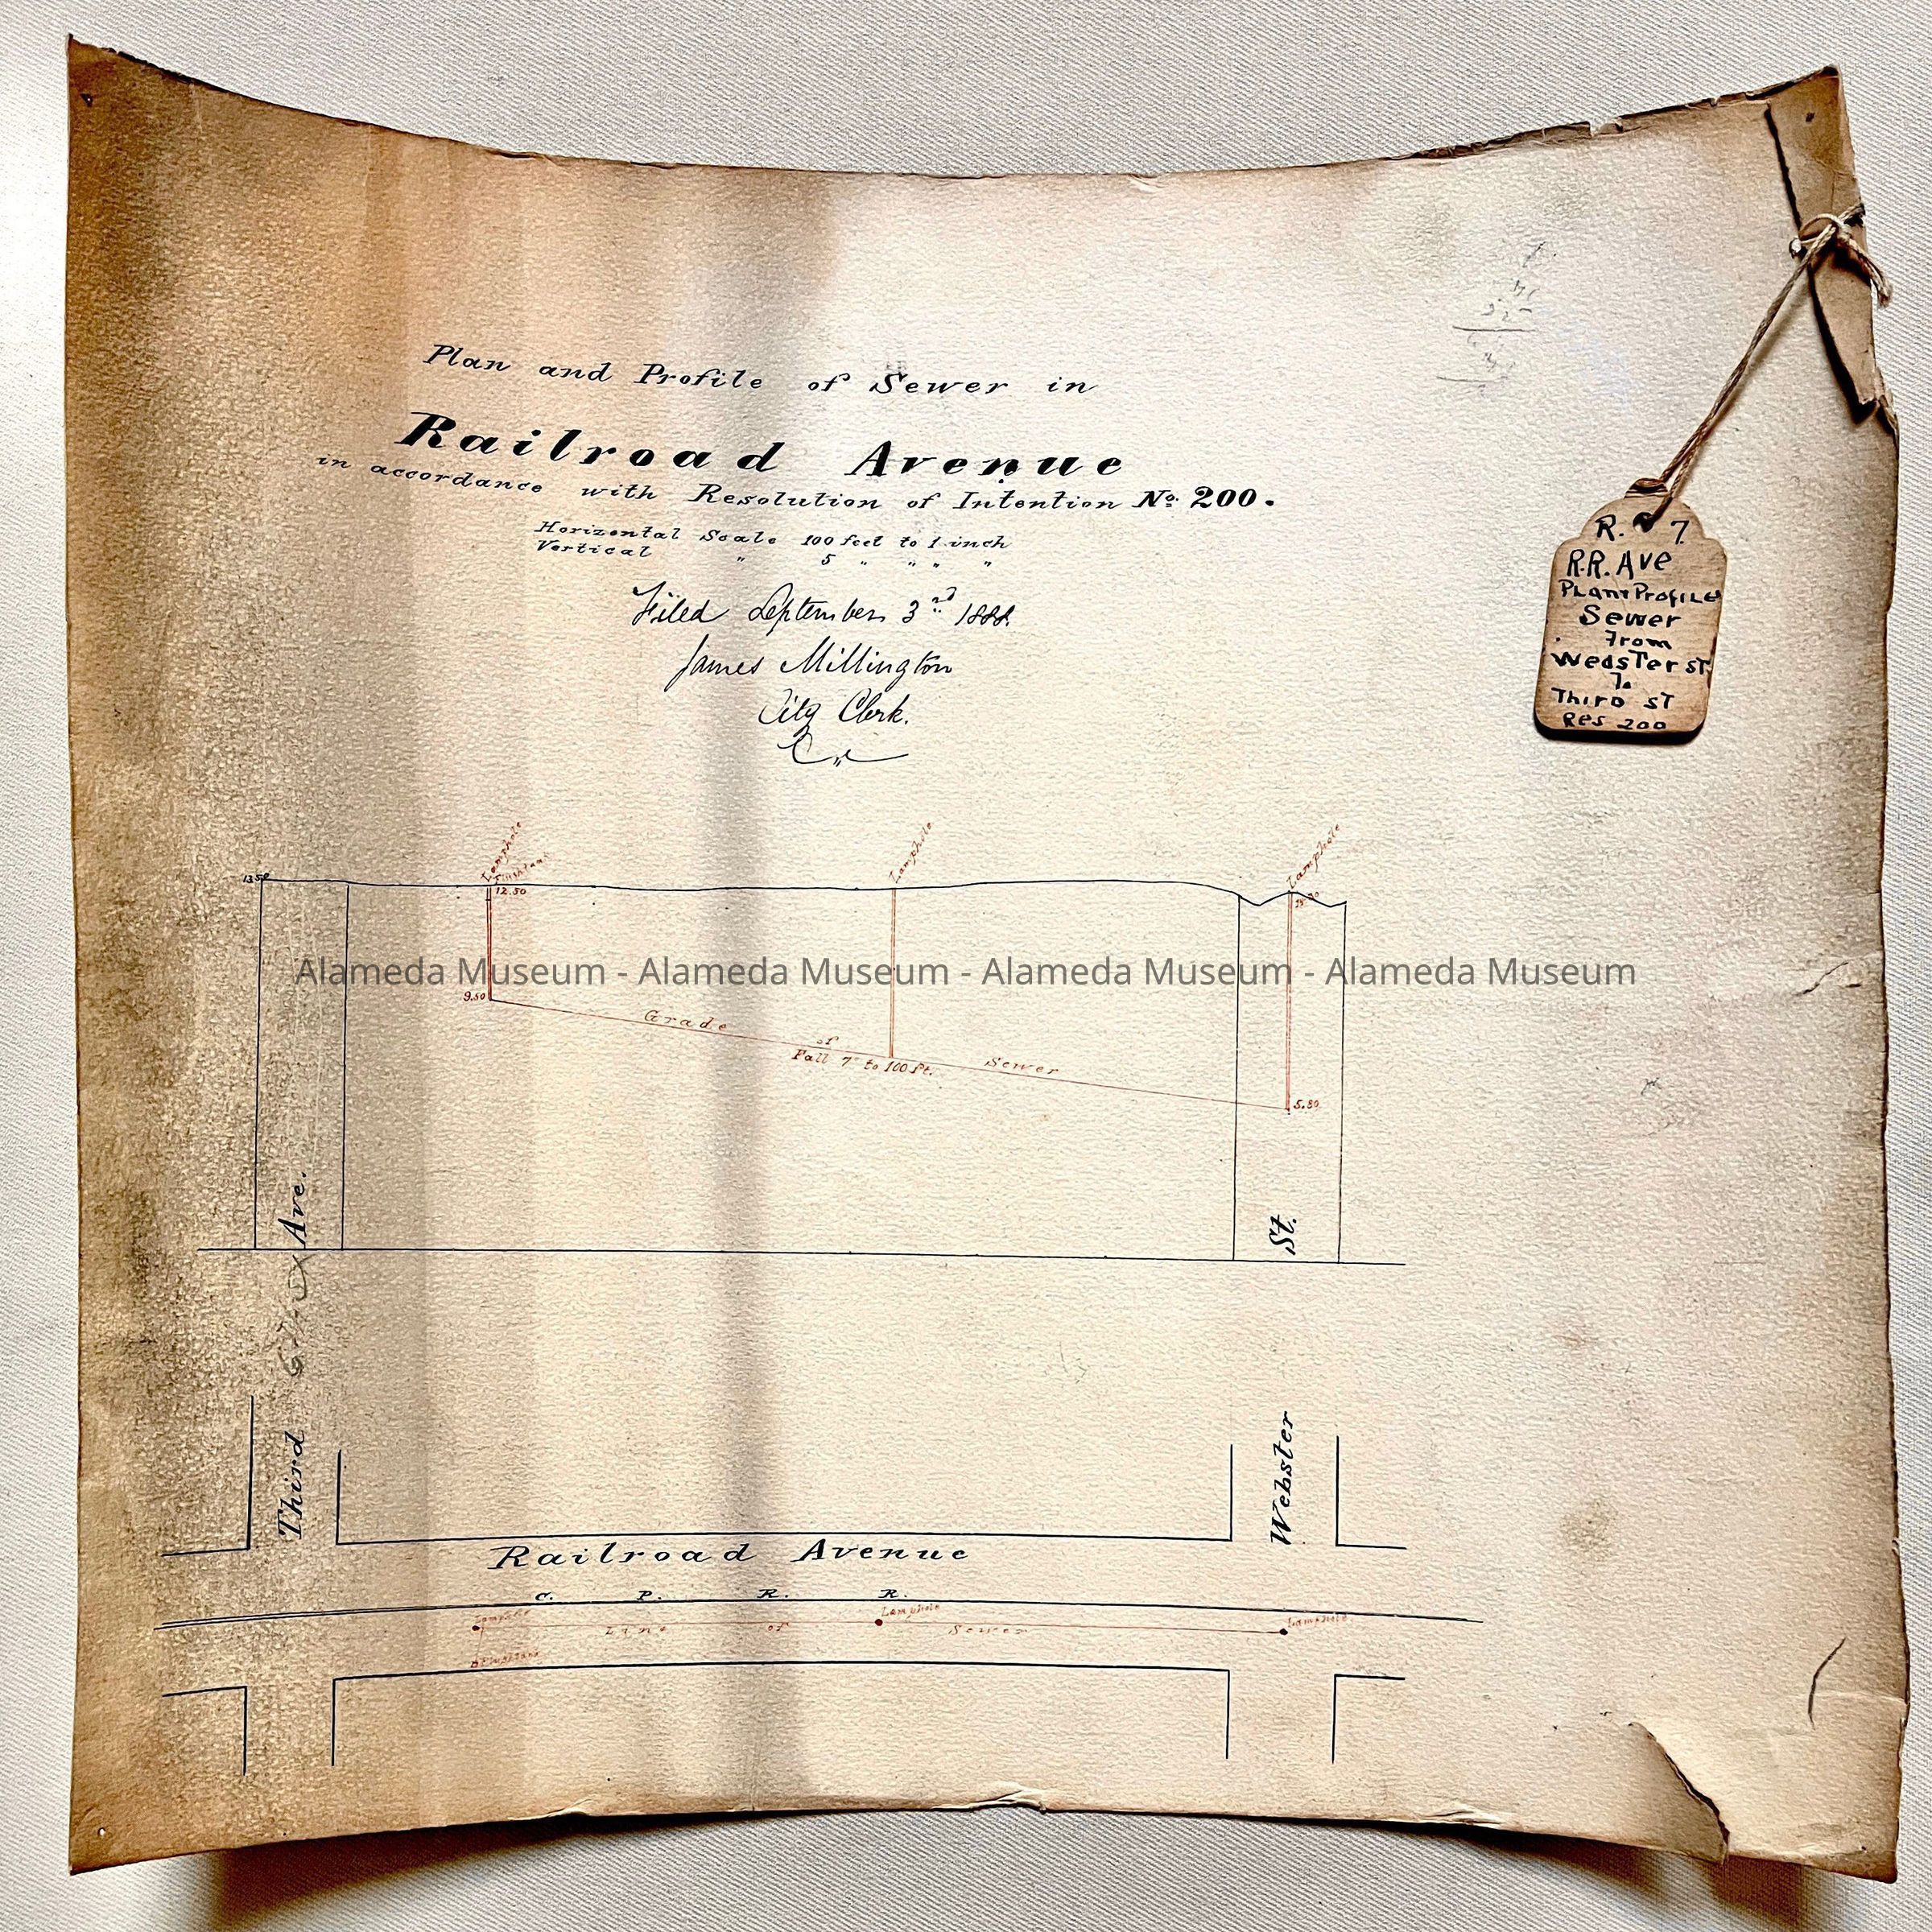 Plan and Profile of Sewer in
Railroad Avenue
in accordance with Resolution of Intention No. 200.
Horizontal Scale 100 feet to 1 inch
Vertical " 5 " " " "
Filed September 3rd 1888.
James Millington
City Clerk.
R. 7.
R.R. Ave
Plan + Profile
Sewer
From
Wedster St
To
Third St
Res 200
Lamphole
Lamphole
Lamphole
13.50
12.50
Alameda Museum - Alameda Museum - Alameda Museum - Alameda Museum
9.50
Grade of Sewer
Fall 7" to 100 Ft.
5.80
Third Ave.
Webster St.
Railroad Avenue
C. P. R. R.
Lamphole
Lamphole
Lamphole
Line of Sewer